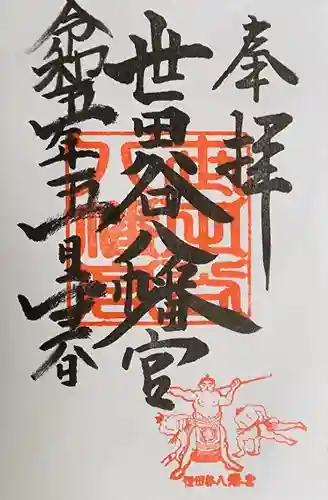 奉拝
世田谷八幡宮
令和五年
世田谷八幡宮